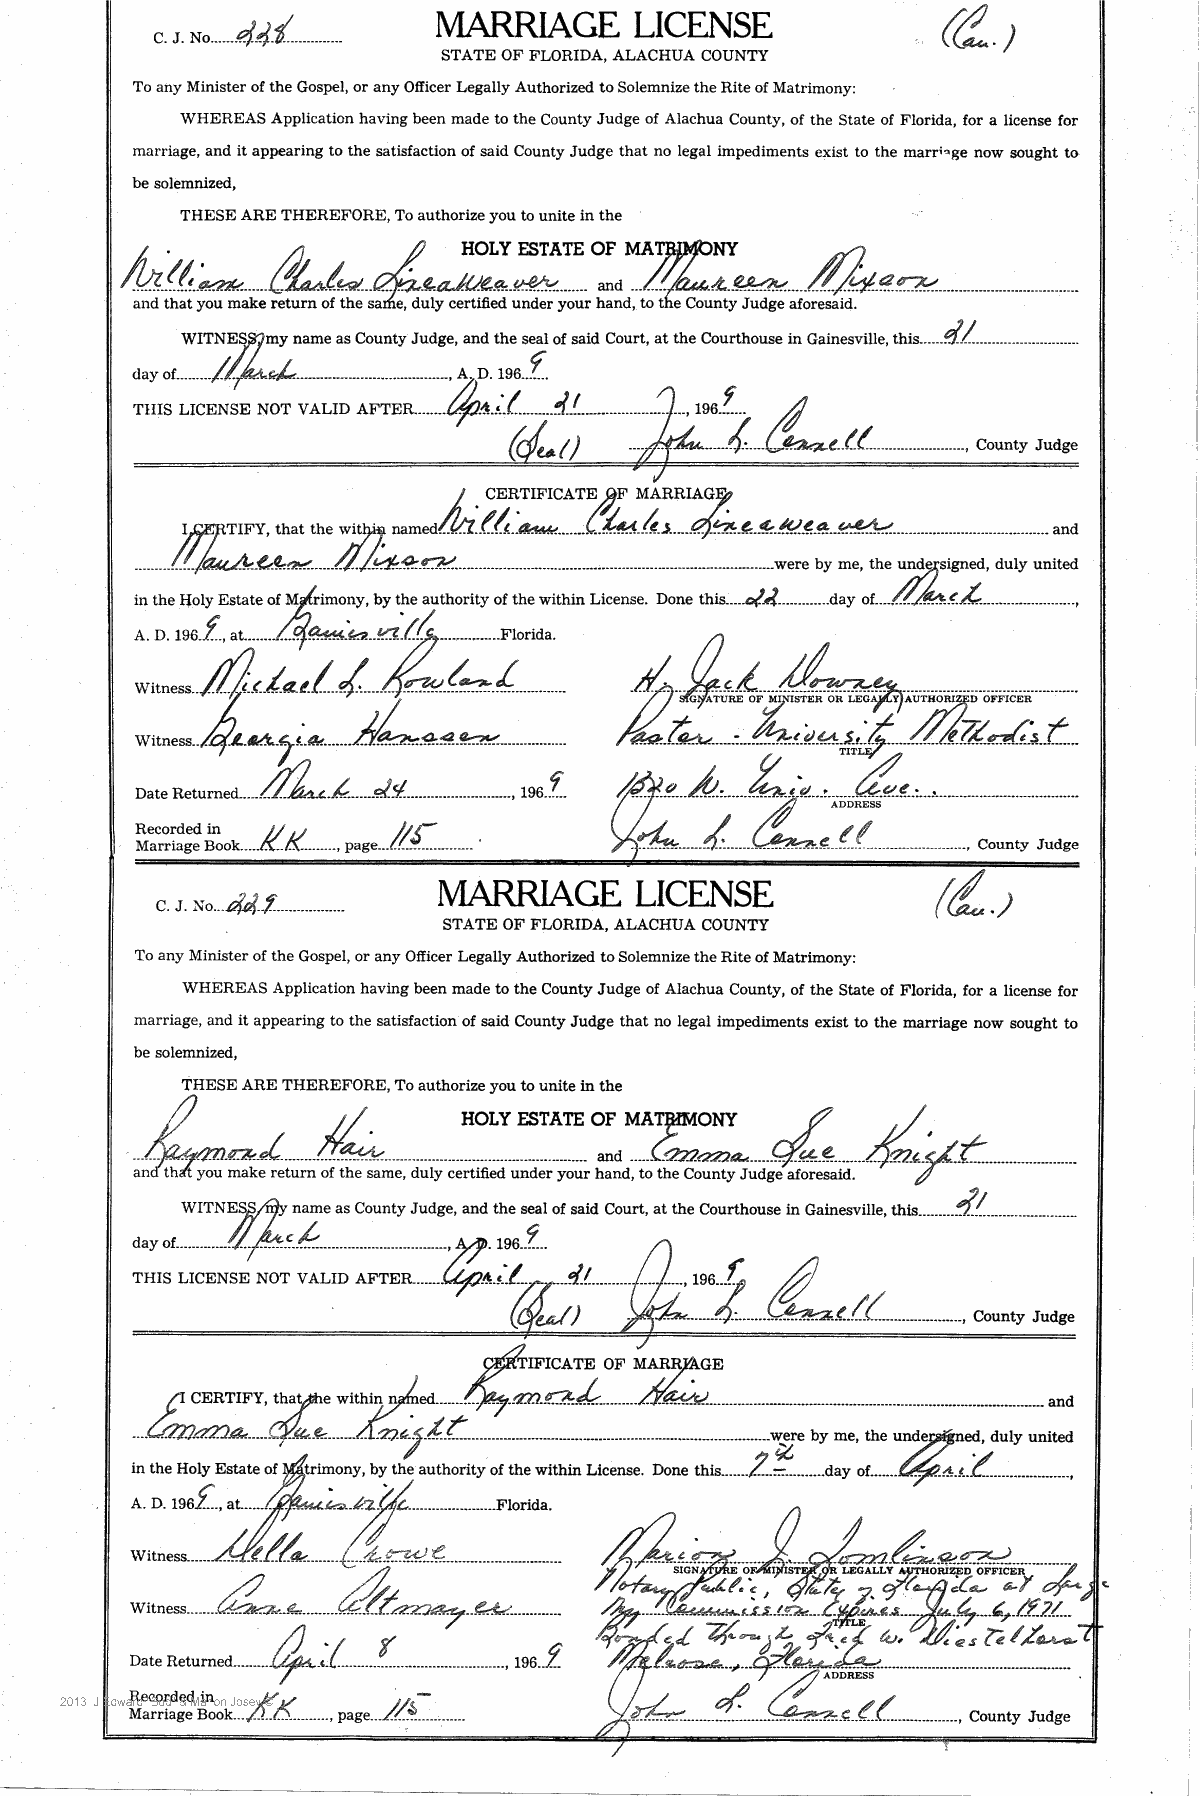 C. J. No. 228 MARRIAGE LICENSE (Cau.)
STATE OF FLORIDA, ALACHUA COUNTY
To any Minister of the Gospel, or any Officer Legally Authorized to Solemnize the Rite of Matrimony:
WHEREAS Application having been made to the County Judge of Alachua County, of the State of Florida, for a license for
marriage, and it appearing to the satisfaction of said County Judge that no legal impediments exist to the marriage now sought to
be solemnized,
THESE ARE THEREFORE, To authorize you to unite in the
HOLY ESTATE OF MATRIMONY
William Charles Lineaweaver and Maureen Mixson
and that you make return of the same, duly certified under your hand, to the County Judge aforesaid.
WITNESS, my name as County Judge, and the seal of said Court, at the Courthouse in Gainesville, this 21
day of March, A. D. 196 9
THIS LICENSE NOT VALID AFTER April 21, 196 9
(Seal) John L. Connell, County Judge
CERTIFICATE OF MARRIAGE
I CERTIFY, that the within named William Charles Lineaweaver and
Maureen Mixson were by me, the undersigned, duly united
in the Holy Estate of Matrimony, by the authority of the within License. Done this 22 day of March,
A. D. 196 9, at Gainesville Florida.
Witness Michael L. Rowland H. Jack Downey
SIGNATURE OF MINISTER OR LEGALLY AUTHORIZED OFFICER
Witness Georgia Hanssen Pastor - University Methodist
TITLE
Date Returned March 24, 196 9 1320 W. Univ. Ave.
ADDRESS
Recorded in
Marriage Book KK, page 115 John L. Connell, County Judge
C. J. No. 229 MARRIAGE LICENSE (Cau.)
STATE OF FLORIDA, ALACHUA COUNTY
To any Minister of the Gospel, or any Officer Legally Authorized to Solemnize the Rite of Matrimony:
WHEREAS Application having been made to the County Judge of Alachua County, of the State of Florida, for a license for
marriage, and it appearing to the satisfaction of said County Judge that no legal impediments exist to the marriage now sought to
be solemnized,
THESE ARE THEREFORE, To authorize you to unite in the
HOLY ESTATE OF MATRIMONY
Raymond Hair and Emma Sue Knight
and that you make return of the same, duly certified under your hand, to the County Judge aforesaid.
WITNESS, my name as County Judge, and the seal of said Court, at the Courthouse in Gainesville, this 21
day of March, A. D. 196 9
THIS LICENSE NOT VALID AFTER April 21, 196 9
(Seal) John L. Connell, County Judge
CERTIFICATE OF MARRIAGE
I CERTIFY, that the within named Raymond Hair and
Emma Sue Knight were by me, the undersigned, duly united
in the Holy Estate of Matrimony, by the authority of the within License. Done this 7th day of April,
A. D. 196 9, at Gainesville Florida.
Witness Della Crowe Marion J. Tomlinson
SIGNATURE OF MINISTER OR LEGALLY AUTHORIZED OFFICER
Notary Public, State of Florida at Large
Witness Anne Altmayer My Commission Expires July 6, 1971
TITLE
Bonded through Fred W. Diestelhorst
Date Returned April 8, 196 9 Melrose, Florida
ADDRESS
Recorded in
Marriage Book KK, page 115 John L. Connell, County Judge
2013 J Edward